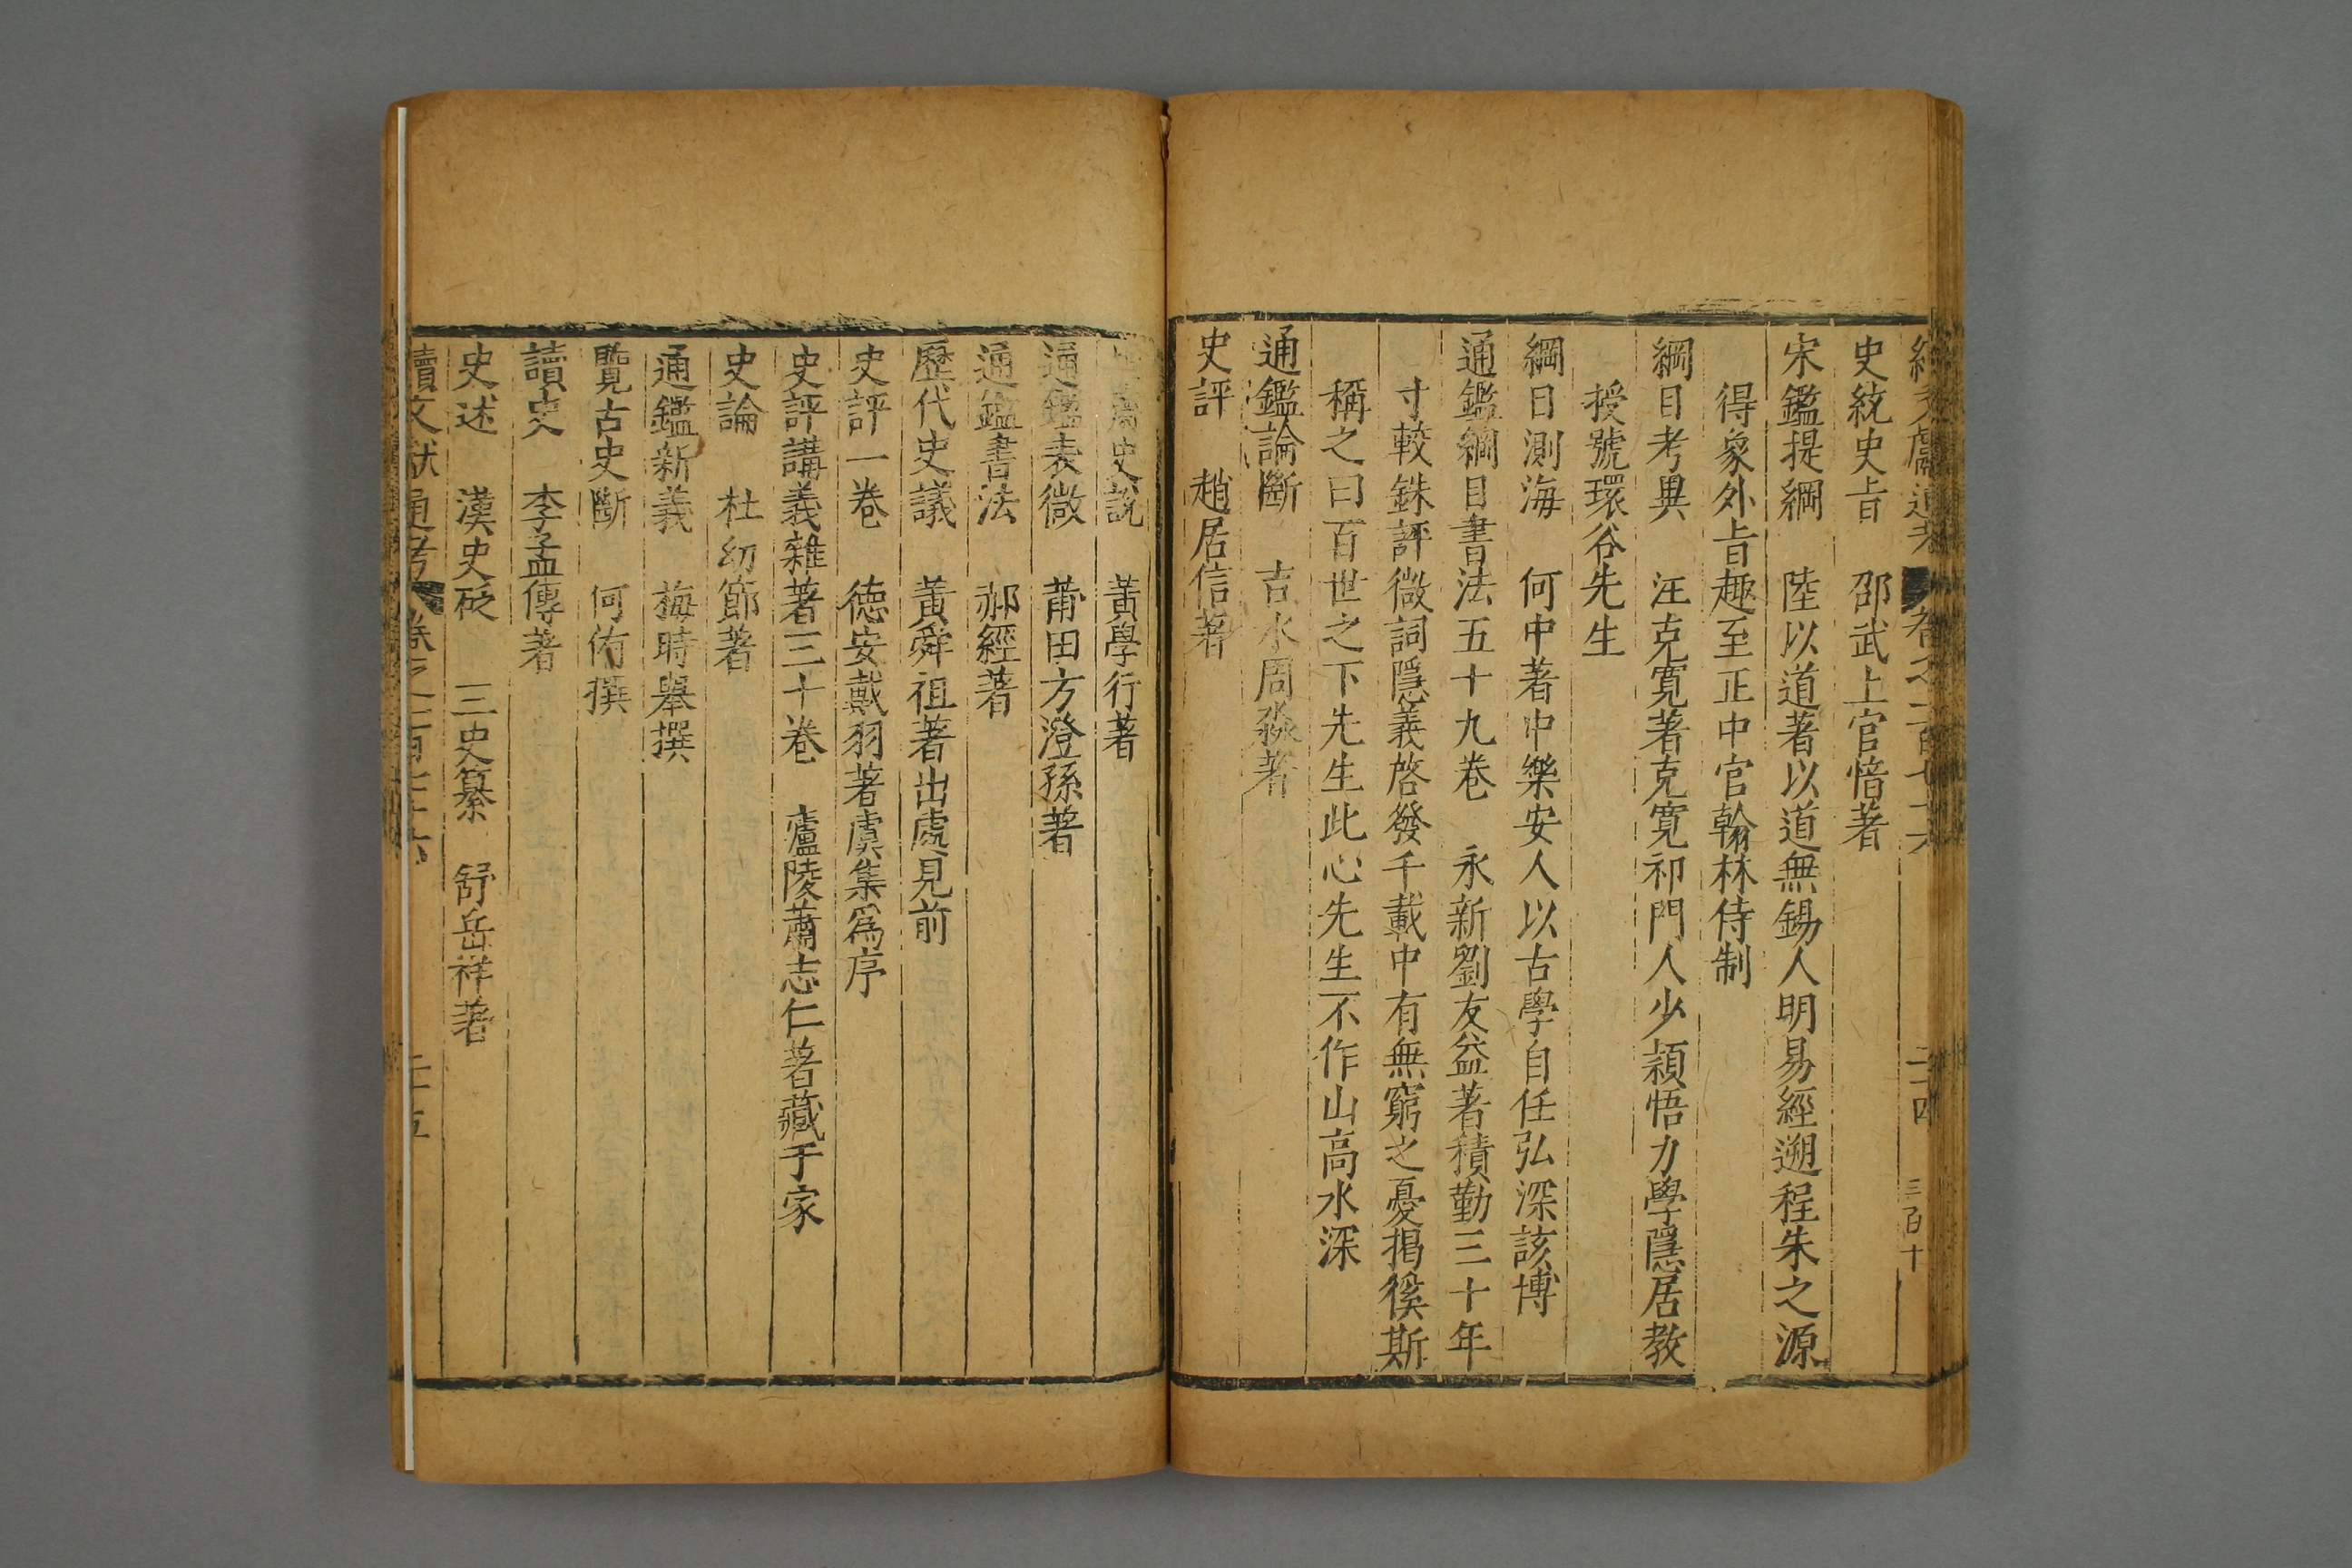 續文獻通考 卷之一百七十六 二十四 三百十
史統史旨 邵武上官愔著
宋鑑提綱 陸以道著以道無錫人明易經遡程朱之源
得象外旨趣至正中官翰林侍制
綱目考異 汪克寬著克寬祁門人少穎悟力學隱居教
授號環谷先生
綱目測海 何中著中樂安人以古學自任弘深該博
通鑑綱目書法五十九卷 永新劉友益著積勤三十年
寸較銖評微詞隱義啓發千載中有無窮之憂揭徯斯
稱之曰百世之下先生此心先生不作山高水深
通鑑論斷 吉水周淼著
史評 趙居信著
史說 黃學行著
通鑑表微 莆田方澄孫著
通鑑書法 郝經著
歷代史議 黃舜祖著出處見前
史評一卷 德安戴羽著虞集爲序
史評講義雜著三十卷 廬陵蕭志仁著藏于家
史論 杜幼節著
通鑑新義 梅時舉撰
覽古史斷 何侑撰
讀史 李孟傳著
史述 漢史砭 三史纂 舒岳祥著
續文獻通考 卷之一百七十六 二十五